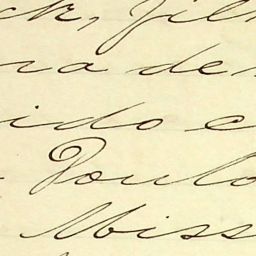 ck, fil
ra de
ido e
Paulo
Miss